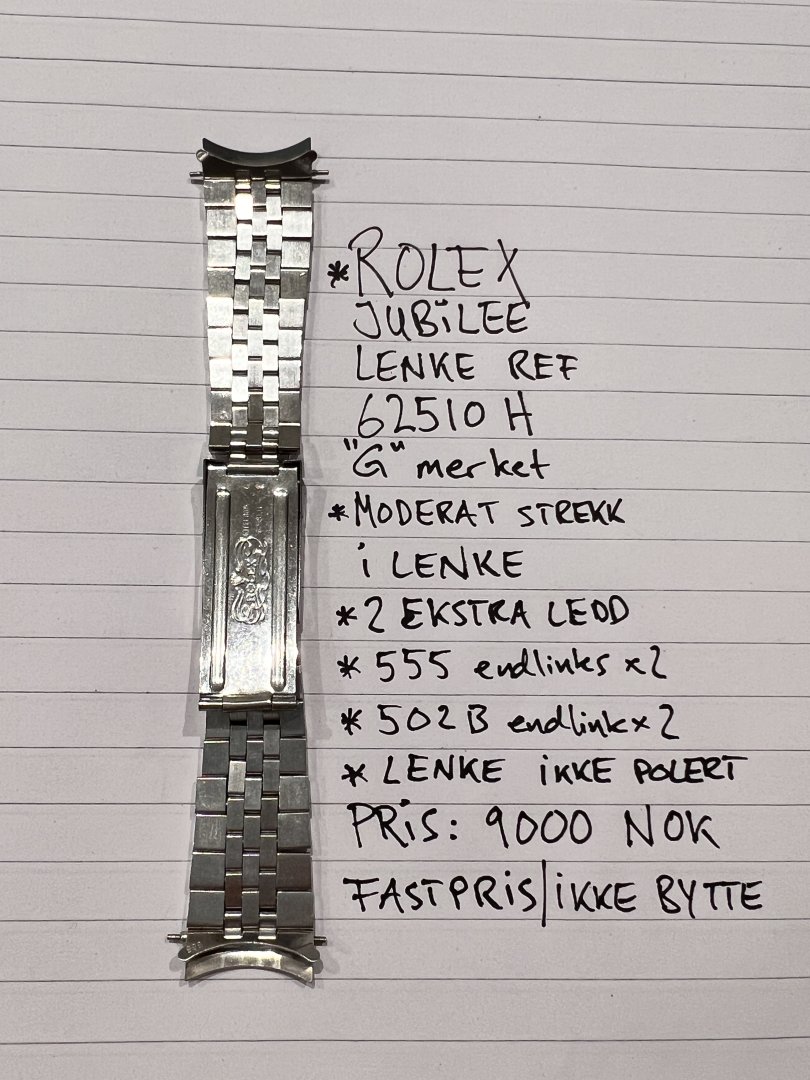 *ROLEX
JUBiLEE
LENKE REF
62510 H
"G" merket
*MODERAT STREKK
i LENKE
*2 EKSTRA LEDD
* 555 endlinks x2
* 502B endlink x2
* LENKE iKKE POLERT
PRiS: 9000 NOK
FASTPRiS/iKKE BYTTE
ROLEX
555